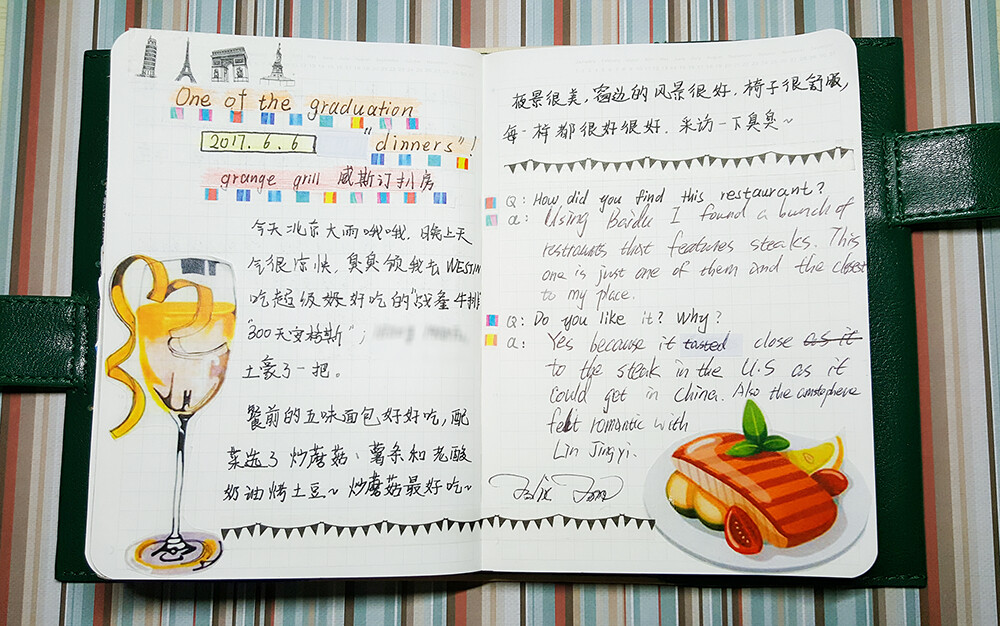 One of the graduation
2017.6.6 "dinners"!
grange grill 威斯汀扒房
今天北京大雨哦哦，晚上天
气很凉快，臭臭领我去WESTIN
吃超级好好吃的"战斧牛排
"300天安格斯"；
土豪了一把。
餐前的五味面包好好吃，配
菜选了炒蘑菇、薯条和老酸
奶油烤土豆~炒蘑菇最好吃~
夜景很美，窗边的风景很好，椅子很舒服，
每一样都很好很好．采访一下臭臭~
Q: How did you find this restaurant?
a: Using Baidu I found a bunch of
restraunts that features steaks. This
one is just one of them and the closest
to my place.
Q: Do you like it? Why?
a: Yes because it tasted close as it
to the steak in the U.S as it
could get in china. Also the amstophere
felt romantic with
Lin Jingyi.